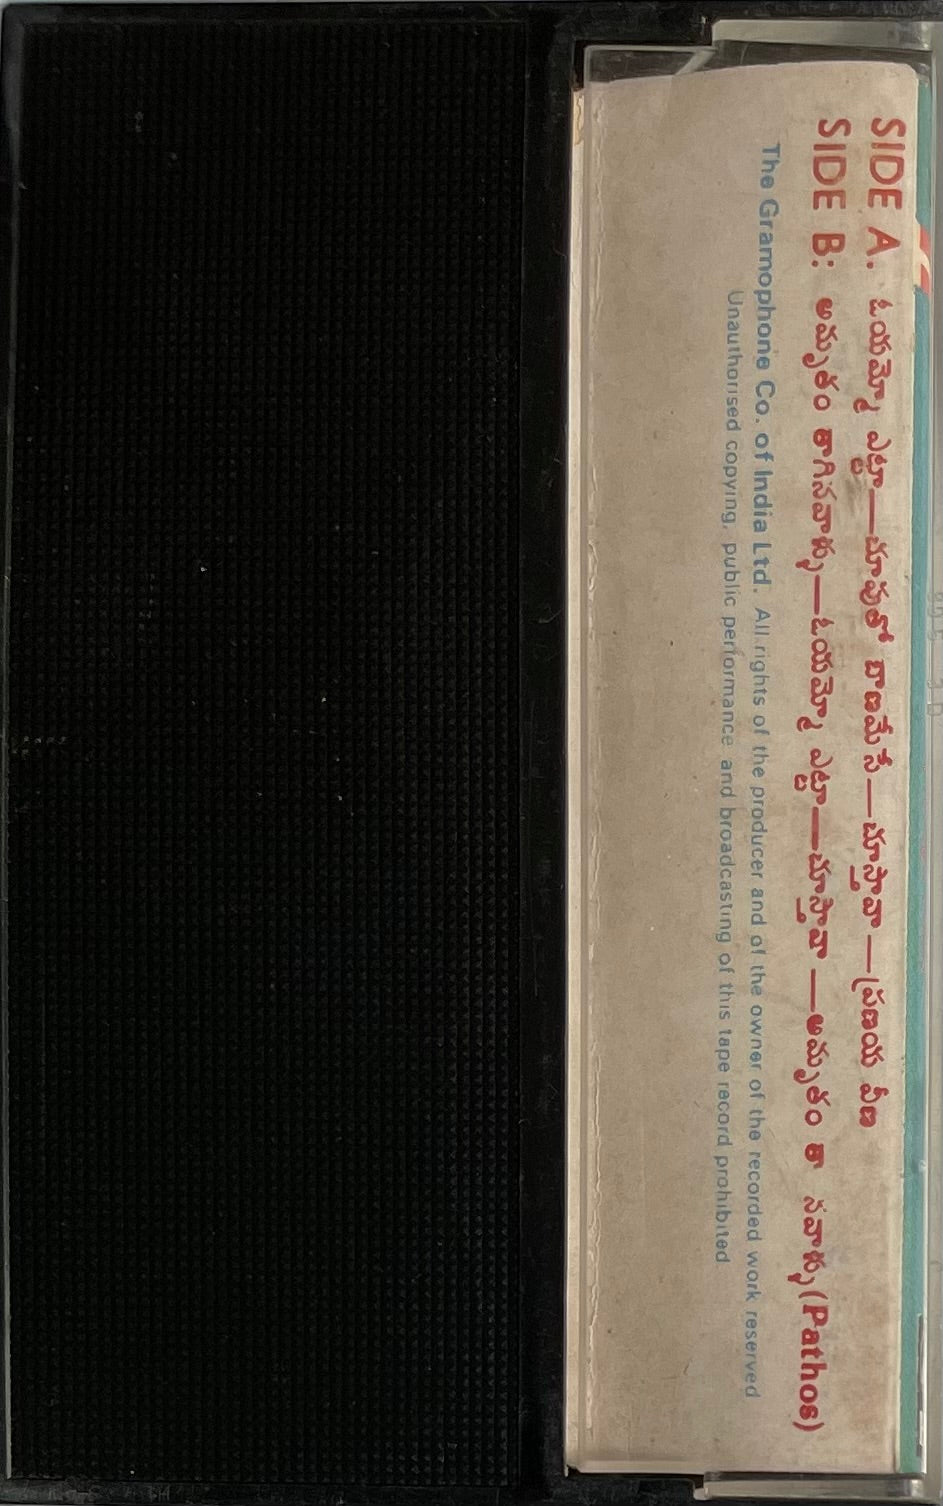 SIDE A. ఓయమ్మో ఎట్టా—చూపుతో బాణమేసి—చూస్తావా—ప్రణయ వీణ
SIDE B: అమృతం తాగినవాళ్ళు—ఓయమ్మో ఎట్టా—చూస్తావా—అమృతం తా నవాళ్ళు (Pathos)
The Gramophone Co. of India Ltd. All rights of the producer and of the owner of the recorded work reserved
Unauthorised copying, public performance and broadcasting of this tape record prohibited